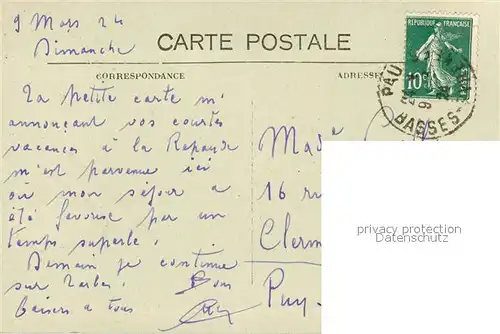 9 Mars 24
Dimanche
CARTE POSTALE
CORRESPONDANCE
ADRESSE
REPUBLIQUE FRANÇAISE
10c
PAU
9
BASSES
La petite carte m'
annonçant vos courtes
vacances à la
m'est parvenue ici
où mon séjour a
été favorisé par un
temps superbe.
Demain je continue
sur Tarbes. Bons
baisers à tous
Made
16 ru
Clerm
Puy-
privacy protection
Datenschutz